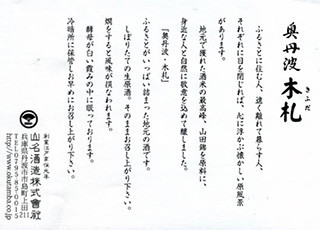 奥丹波 木札
きふだ
ふるさとに住む人、遠く離れて暮らす人、
それぞれに目を閉じれば、心に浮かぶ懐かしい原風景
があります。
地元で獲れた酒米の最高峰、山田錦を原料に、
身近な人と自然に敬意を込めて醸しました。
『奥丹波・木札』
ふるさとがいっぱい詰まった地元の酒です。
しぼりたての生原酒。そのままお召し上がり下さい。
燗をすると風味が損なわれます。
酵母が白い霞みの中に眠っております。
冷暗所に保管しお早めにお召し上がり下さい。
創業江戸享保元年
山名酒造株式會社
兵庫県丹波市市島町上田211
TEL0795-85-0015
http://www.okutamba.co.jp